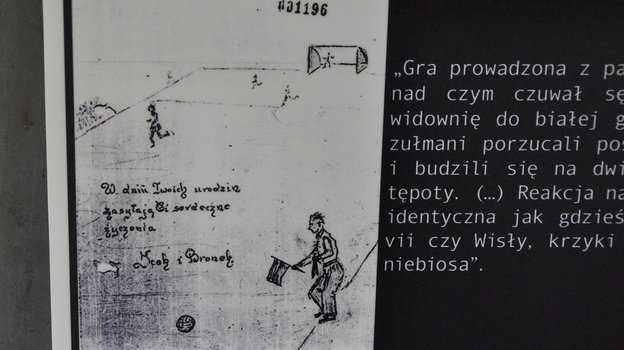 031196
W dniu Twoich urodzin
zasyłają Ci serdeczne
życzenia
i Bronek
„Gra prowadzona z pa
nad czym czuwał sę
widownię do białej g
zułmani porzucali pos
i budzili się na dwi
tępoty. (…) Reakcja na
identyczna jak gdzieś
vii czy Wisły, krzyki
niebiosa”.